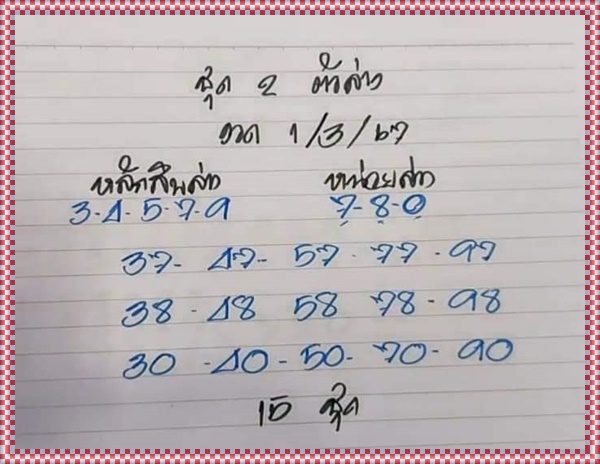 ชุด 2 ตัวล่าง
งวด 1/3/67
หลักสิบล่าง หน่วยล่าง
3-4-5-7-9 7-8-0
37- 47- 57- 77- 97
38 - 48 58 78 - 98
30 - 40 - 50 - 70 - 90
15 ชุด